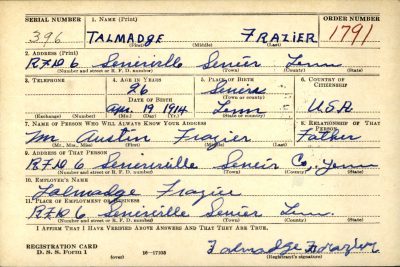 SERIAL NUMBER 1. NAME (Print) ORDER NUMBER
396 TALMADGE FRAZIER 1791
(First) (Middle) (Last)
2. ADDRESS (Print)
R.F.D. 6 Sevierville Sevier Tenn
(Number and street or R. F. D. number) (Town) (County) (State)
3. TELEPHONE 4. AGE IN YEARS 5. PLACE OF BIRTH 6. COUNTRY OF CITIZENSHIP
26 Sevier
DATE OF BIRTH (Town or county)
Apr. 19 1914 Tenn U.S.A.
(Exchange) (Number) (Mo.) (Day) (Yr.) (State or country)
7. NAME OF PERSON WHO WILL ALWAYS KNOW YOUR ADDRESS 8. RELATIONSHIP OF THAT PERSON
Mr Austin Frazier Father
(Mr., Mrs., Miss) (First) (Middle) (Last)
9. ADDRESS OF THAT PERSON
R.F.D. 6 Sevierville Sevier Co, Tenn
(Number and street or R. F. D. number) (Town) (County) (State)
10. EMPLOYER'S NAME
Talmadge Frazier
11. PLACE OF EMPLOYMENT OR BUSINESS
R.F.D. 6 Sevierville Sevier Tenn.
(Number and street or R. F. D. number) (Town) (County) (State)
I AFFIRM THAT I HAVE VERIFIED ABOVE ANSWERS AND THAT THEY ARE TRUE.
REGISTRATION CARD
D. S. S. Form 1 16—17105 Talmadge Frazier
(over) (Registrant's signature)